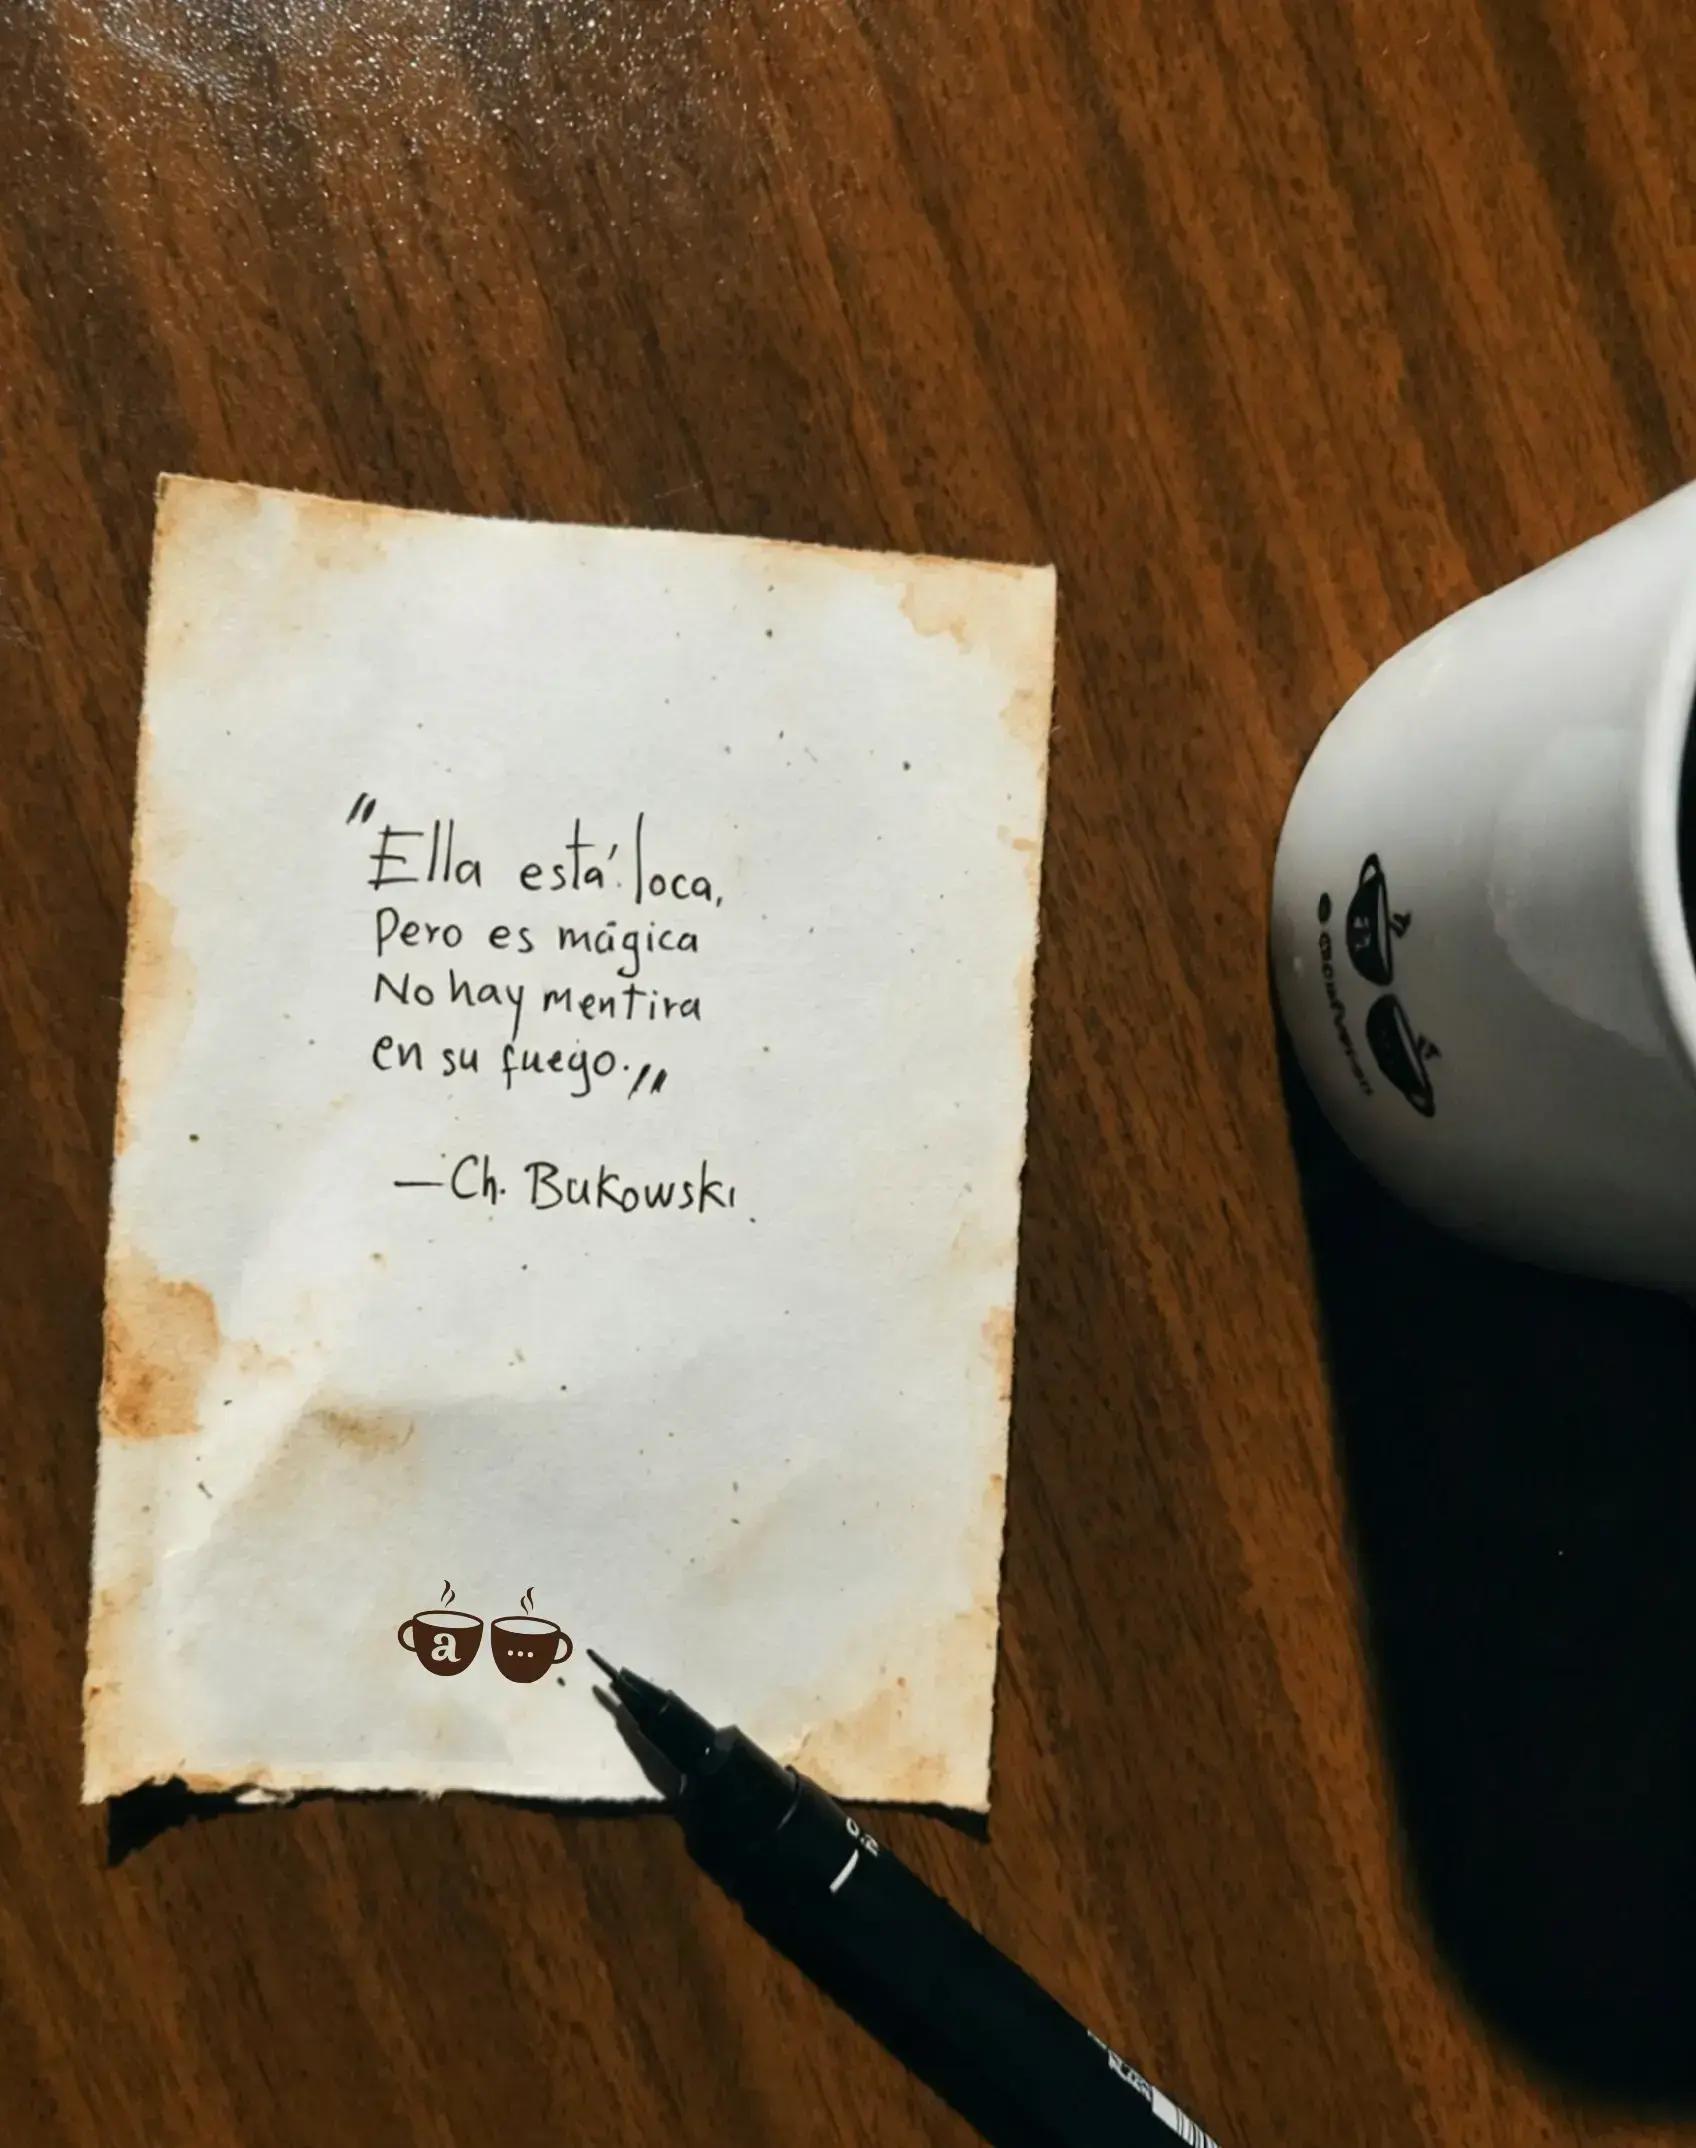 "Ella está loca,
Pero es mágica
No hay mentira
en su fuego."
—Ch. Bukowski.
a ...
0.2